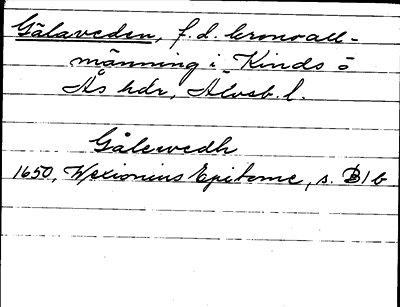 Gälaveden, f.d. kronoall-
männing i Kinds o
Ås hdr, Älvsb. l.
Gälewedh
1650, Wexionius Epitome, s. B1b